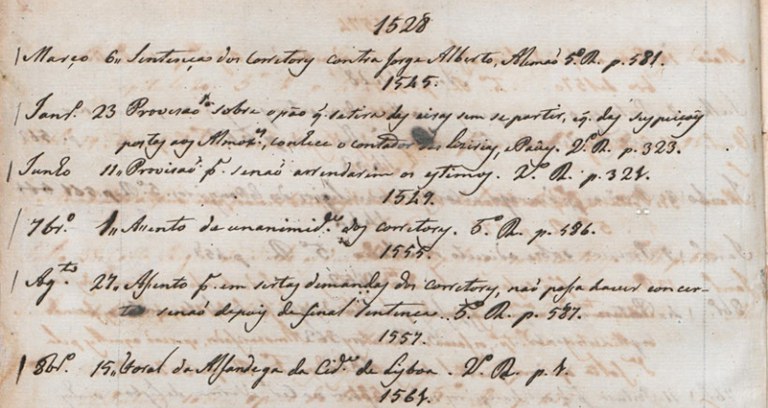 1528
Março 6,, Sentença dos Corretorẏ contra Jorge Alberto, Alemaõ 5.º R. p. 581.
1545.
Janr.º 23 Provisaõ sobre o paõ q̃ se tira dẏ eiras sem se partir, e q̃ das suspeiçoẽs
postas aoẏ Almox.es, conhece o contador das Lizirias, e Paûẏ. 2.º R. p. 323.
Junho 11,, Provisaõ p.ª se naõ arrendarem os estimoẏ. 2.º R. p. 324.
1549.
7br.º 1,, Assento da unanimid.e doẏ corretorẏ. 5.º R. p. 586.
1555.
Ag.to 27,, Assento p.ª em sertas demandas dos corretorẏ, naõ possa haver concer-
to senaõ depoiẏ de final sentença. 5.º R. p. 587.
1557.
8br.º 15,, Foral da Alfandega da Cid.e de Lẏboa. 2.º R. p. 1.
1564.